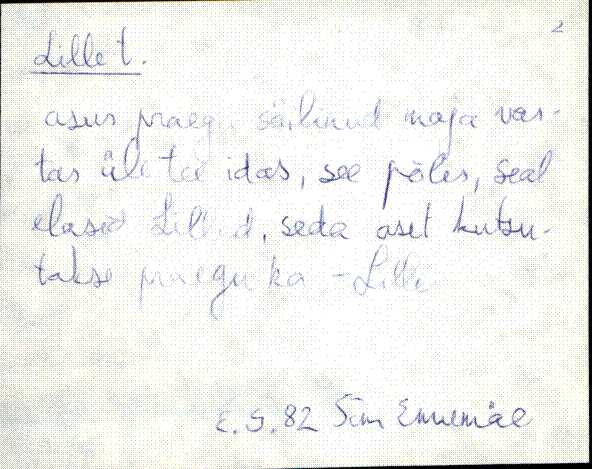 2
Lille t.
asus praegu säilinud maja vas-
tas üle tee idas, see põles, seal
elasid Lilled, seda aset kutsu-
takse praegu ka - Lille
E. S. 82 Siim Ennemäe